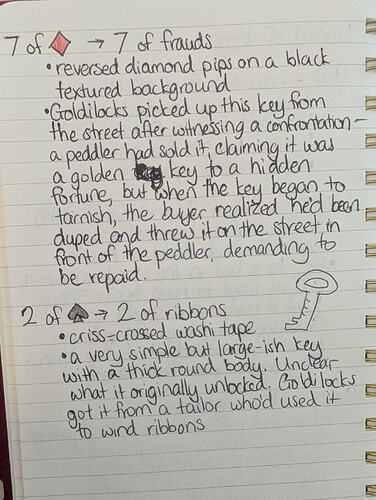 7 of ♦ → 7 of frauds
• reversed diamond pips on a black
textured background
• Goldilocks picked up this key from
the street after witnessing a confrontation –
a peddler had sold it, claiming it was
a golden key to a hidden
fortune, but when the key began to
tarnish, the buyer realized he'd been
duped and threw it on the street in
front of the peddler, demanding to
be repaid.
2 of ♠ → 2 of ribbons
• criss-crossed washi tape
• a very simple but large-ish key
with a thick round body. Unclear
what it originally unlocked. Goldilocks
got it from a tailor who'd used it
to wind ribbons